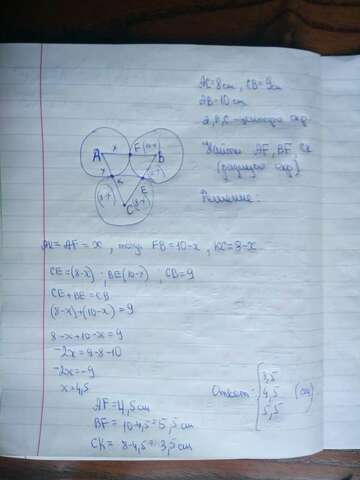 AC=8cm, CB=9cm
AB=10cm
A,B,C-центры окр.
Найти AF, BF, CK
(радиусы окр)
Решение:
A
x
F
(10-x)
B
x
K
E
(8-x)
C
(8-x)
AK=AF=x, тогда FB=10-x, KC=8-x
CE=(8-x); BE(10-x), CB=9
CE+BE=CB
(8-x)+(10-x)=9
8-x+10-x=9
-2x=9-8-10
-2x=-9
x=4,5
AF=4,5см
BF=10-4,5=5,5см
CK=8-4,5=3,5см
Ответ: 3,5
4,5 (см)
5,5